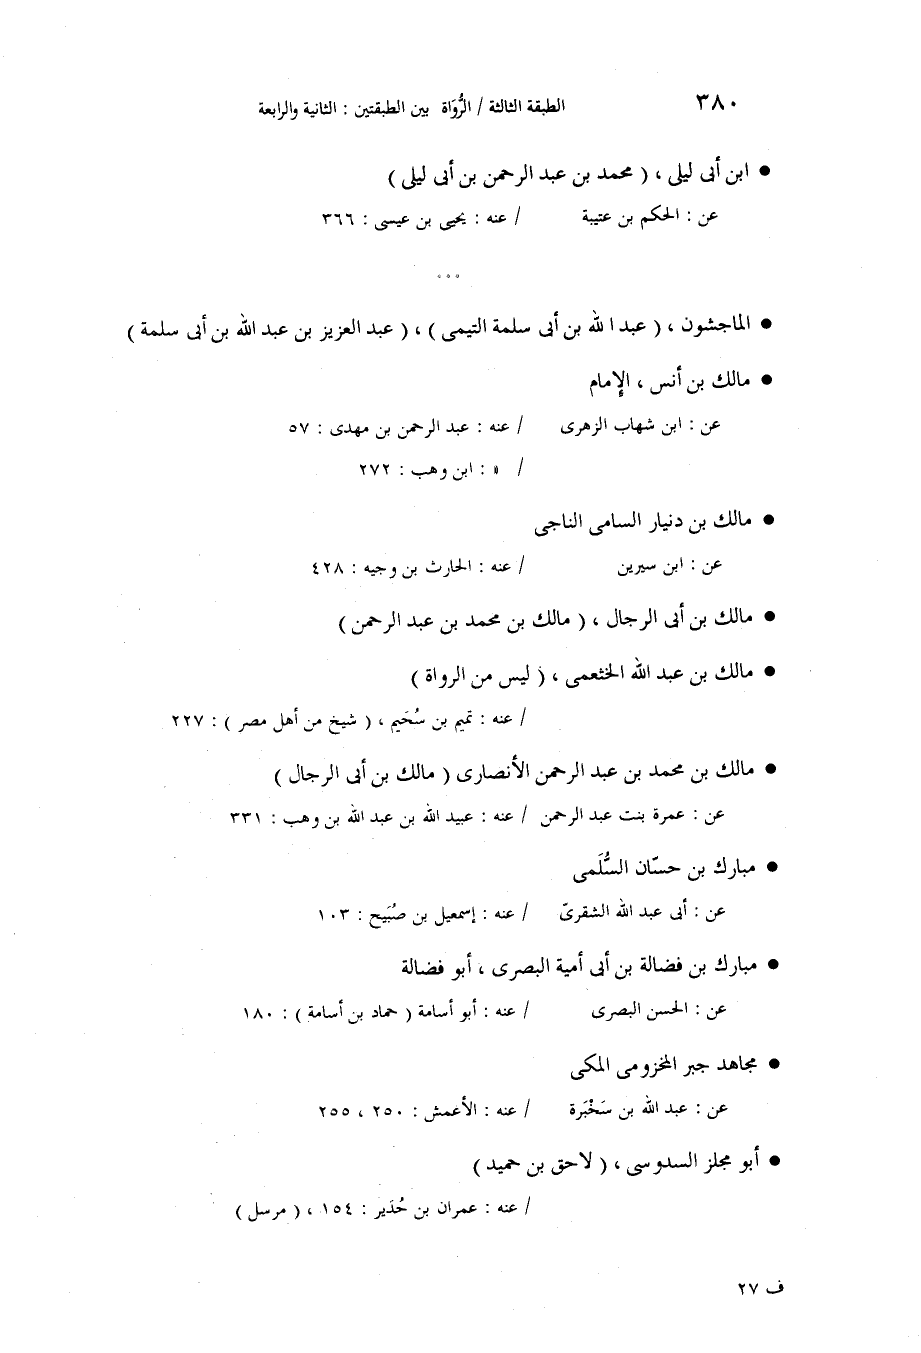 ٣٨٠ الطبقة الثالثة / الرُّوَاة بين الطبقتين : الثانية والرابعة
● ابن أبى ليلى ، ( محمد بن عبد الرحمن بن أبى ليلى )
عن : الحكم بن عتيبة / عنه : يحيى بن عيسى : ٣٦٦
° ° °
● الماجشون ، ( عبد الله بن أبى سلمة التيمى ) ، ( عبد العزيز بن عبد الله بن أبى سلمة )
● مالك بن أنس ، الإمام
عن : ابن شهاب الزهرى / عنه : عبد الرحمن بن مهدى : ٥٧
/ » : ابن وهب : ٢٧٢
● مالك بن دنيار السامى الناجى
عن : ابن سيرين / عنه : الحارث بن وجيه : ٤٢٨
● مالك بن أبى الرجال ، ( مالك بن محمد بن عبد الرحمن )
● مالك بن عبد الله الخثعمى ، ( ليس من الرواة )
/ عنه : تميم بن سُحَيم ، ( شيخ من أهل مصر ) : ٢٢٧
● مالك بن محمد بن عبد الرحمن الأنصارى ( مالك بن أبى الرجال )
عن : عمرة بنت عبد الرحمن / عنه : عبيد الله بن عبد الله بن وهب : ٣٣١
● مبارك بن حسّان السُّلَمى
عن : أبى عبد الله الشقرىّ / عنه : إسمعيل بن صُبَيح : ١٠٣
● مبارك بن فضالة بن أبى أمية البصرى ، أبو فضالة
عن : الحسن البصرى / عنه : أبو أسامة ( حماد بن أسامة ) : ١٨٠
● مجاهد جبر المخزومى المكى
عن : عبد الله بن سَخْبَرة / عنه : الأعمش : ٢٥٠ ، ٢٥٥
● أبو مجلز السدوسى ، ( لاحق بن حميد )
/ عنه : عمران بن حُدَير : ١٥٤ ، ( مرسل )
ف ٢٧